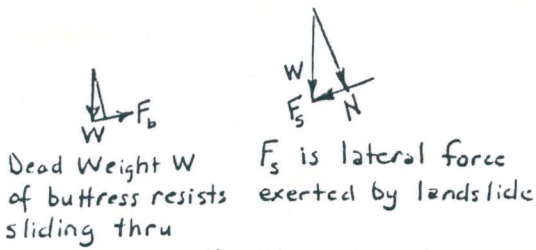 W
F_b
W
F_s
N
Dead Weight W
of buttress resists
sliding thru
F_s is lateral force
exerted by landslide